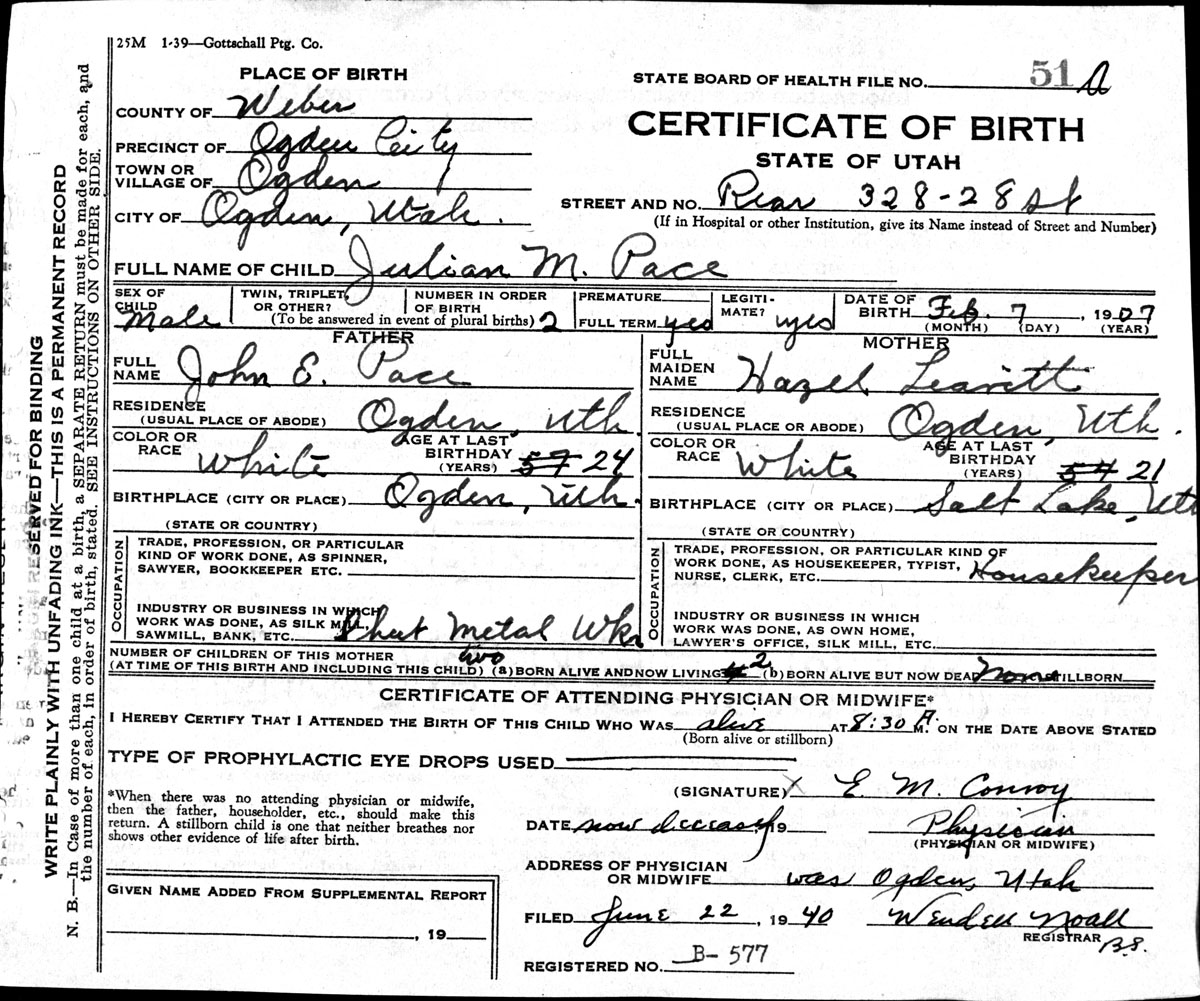 25M 1-39—Gottschall Ptg. Co.
PLACE OF BIRTH
COUNTY OF Weber
PRECINCT OF Ogden City
TOWN OR
VILLAGE OF Ogden
CITY OF Ogden, Utah.
STATE BOARD OF HEALTH FILE NO. 51 a
CERTIFICATE OF BIRTH
STATE OF UTAH
STREET AND NO. Rear 328-28 st
(If in Hospital or other Institution, give its Name instead of Street and Number)
FULL NAME OF CHILD Julian M. Pace
SEX OF
CHILD
Male
TWIN, TRIPLET,
OR OTHER?
NUMBER IN ORDER
OF BIRTH
(To be answered in event of plural births) 2
PREMATURE
FULL TERM yes
LEGITI-
MATE? yes
DATE OF
BIRTH Feb. 7, 1907
(MONTH) (DAY) (YEAR)
FATHER
FULL
NAME John E. Pace
RESIDENCE
(USUAL PLACE OF ABODE) Ogden, Uth.
COLOR OR
RACE White
AGE AT LAST
BIRTHDAY
(YEARS) 57 24
BIRTHPLACE (CITY OR PLACE) Ogden, Uth.
(STATE OR COUNTRY)
OCCUPATION
TRADE, PROFESSION, OR PARTICULAR
KIND OF WORK DONE, AS SPINNER,
SAWYER, BOOKKEEPER ETC.
INDUSTRY OR BUSINESS IN WHICH
WORK WAS DONE, AS SILK MILL,
SAWMILL, BANK, ETC. Sheet Metal Wkr
MOTHER
FULL
MAIDEN
NAME Hazel Leavitt
RESIDENCE
(USUAL PLACE OR ABODE) Ogden, Uth.
COLOR OR
RACE White
AGE AT LAST
BIRTHDAY
(YEARS) 54 21
BIRTHPLACE (CITY OR PLACE) Salt Lake, Uth
(STATE OR COUNTRY)
OCCUPATION
TRADE, PROFESSION, OR PARTICULAR KIND OF
WORK DONE, AS HOUSEKEEPER, TYPIST,
NURSE, CLERK, ETC. Housekeeper
INDUSTRY OR BUSINESS IN WHICH
WORK WAS DONE, AS OWN HOME,
LAWYER'S OFFICE, SILK MILL, ETC.
NUMBER OF CHILDREN OF THIS MOTHER two
(AT TIME OF THIS BIRTH AND INCLUDING THIS CHILD) (a) BORN ALIVE AND NOW LIVING 2 (b) BORN ALIVE BUT NOW DEAD None STILLBORN
CERTIFICATE OF ATTENDING PHYSICIAN OR MIDWIFE*
I HEREBY CERTIFY THAT I ATTENDED THE BIRTH OF THIS CHILD WHO WAS alive AT 8:30 A. M. ON THE DATE ABOVE STATED
(Born alive or stillborn)
TYPE OF PROPHYLACTIC EYE DROPS USED
*When there was no attending physician or midwife,
then the father, householder, etc., should make this
return. A stillborn child is one that neither breathes nor
shows other evidence of life after birth.
(SIGNATURE) X E M. Conroy
DATE now deceased, 19
Physician
(PHYSICIAN OR MIDWIFE)
ADDRESS OF PHYSICIAN
OR MIDWIFE was Ogden, Utah
FILED June 22, 1940 Wendell Noall
REGISTRAR B.S.
REGISTERED NO. B- 577
GIVEN NAME ADDED FROM SUPPLEMENTAL REPORT
, 19
RESERVED FOR BINDING
WRITE PLAINLY WITH UNFADING INK—THIS IS A PERMANENT RECORD
N. B.—In Case of more than one child at a birth, a SEPARATE RETURN must be made for each, and
the number of each, in order of birth, stated. SEE INSTRUCTIONS ON OTHER SIDE.